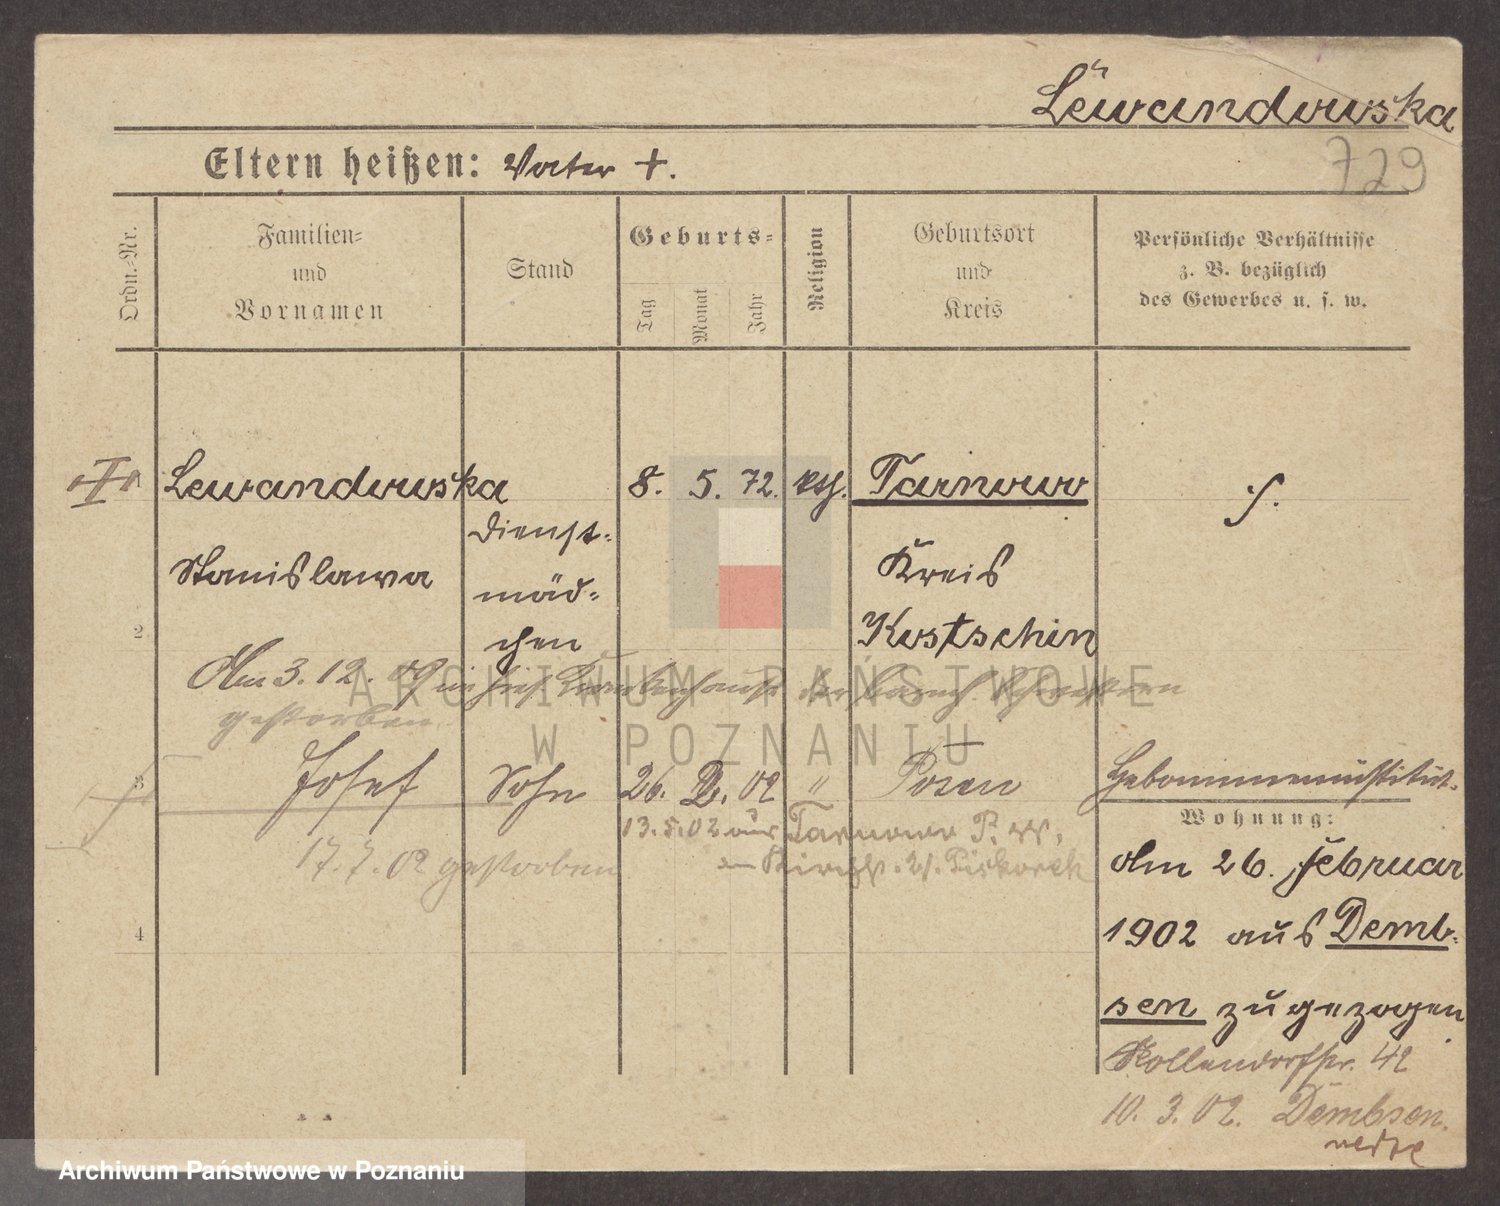 Lewandowska
729
Eltern heißen: Vater +.
Ordn.-Nr.
Familien- und Vornamen
Stand
Geburts-
Tag
Monat
Jahr
Religion
Geburtsort und Kreis
Persönliche Verhältnisse
z. B. bezüglich
des Gewerbes u. s. w.
Lewandowska 8. 5. 72. kth. Tarnowo
Dienst-
Stanislawa mäd- Kreis
2 chen Kostschin
Am 3. 12. 09 im hies. Krankenhause der barmh. Schwestern
gestorben
3 Josef Sohn 26. 2. 02 " Posen Hebammeninstitut.
Wohnung:
13.5.02 aus Tarnowo P. W.
17.7.02 gestorben
Am 26. Februar
4 1902 aus Demb-
sen zugezogen
Kollendorfstr. 42
10. 3. 02. Dembsen.
ARCHIWUM PAŃSTWOWE
W POZNANIU
Archiwum Państwowe w Poznaniu